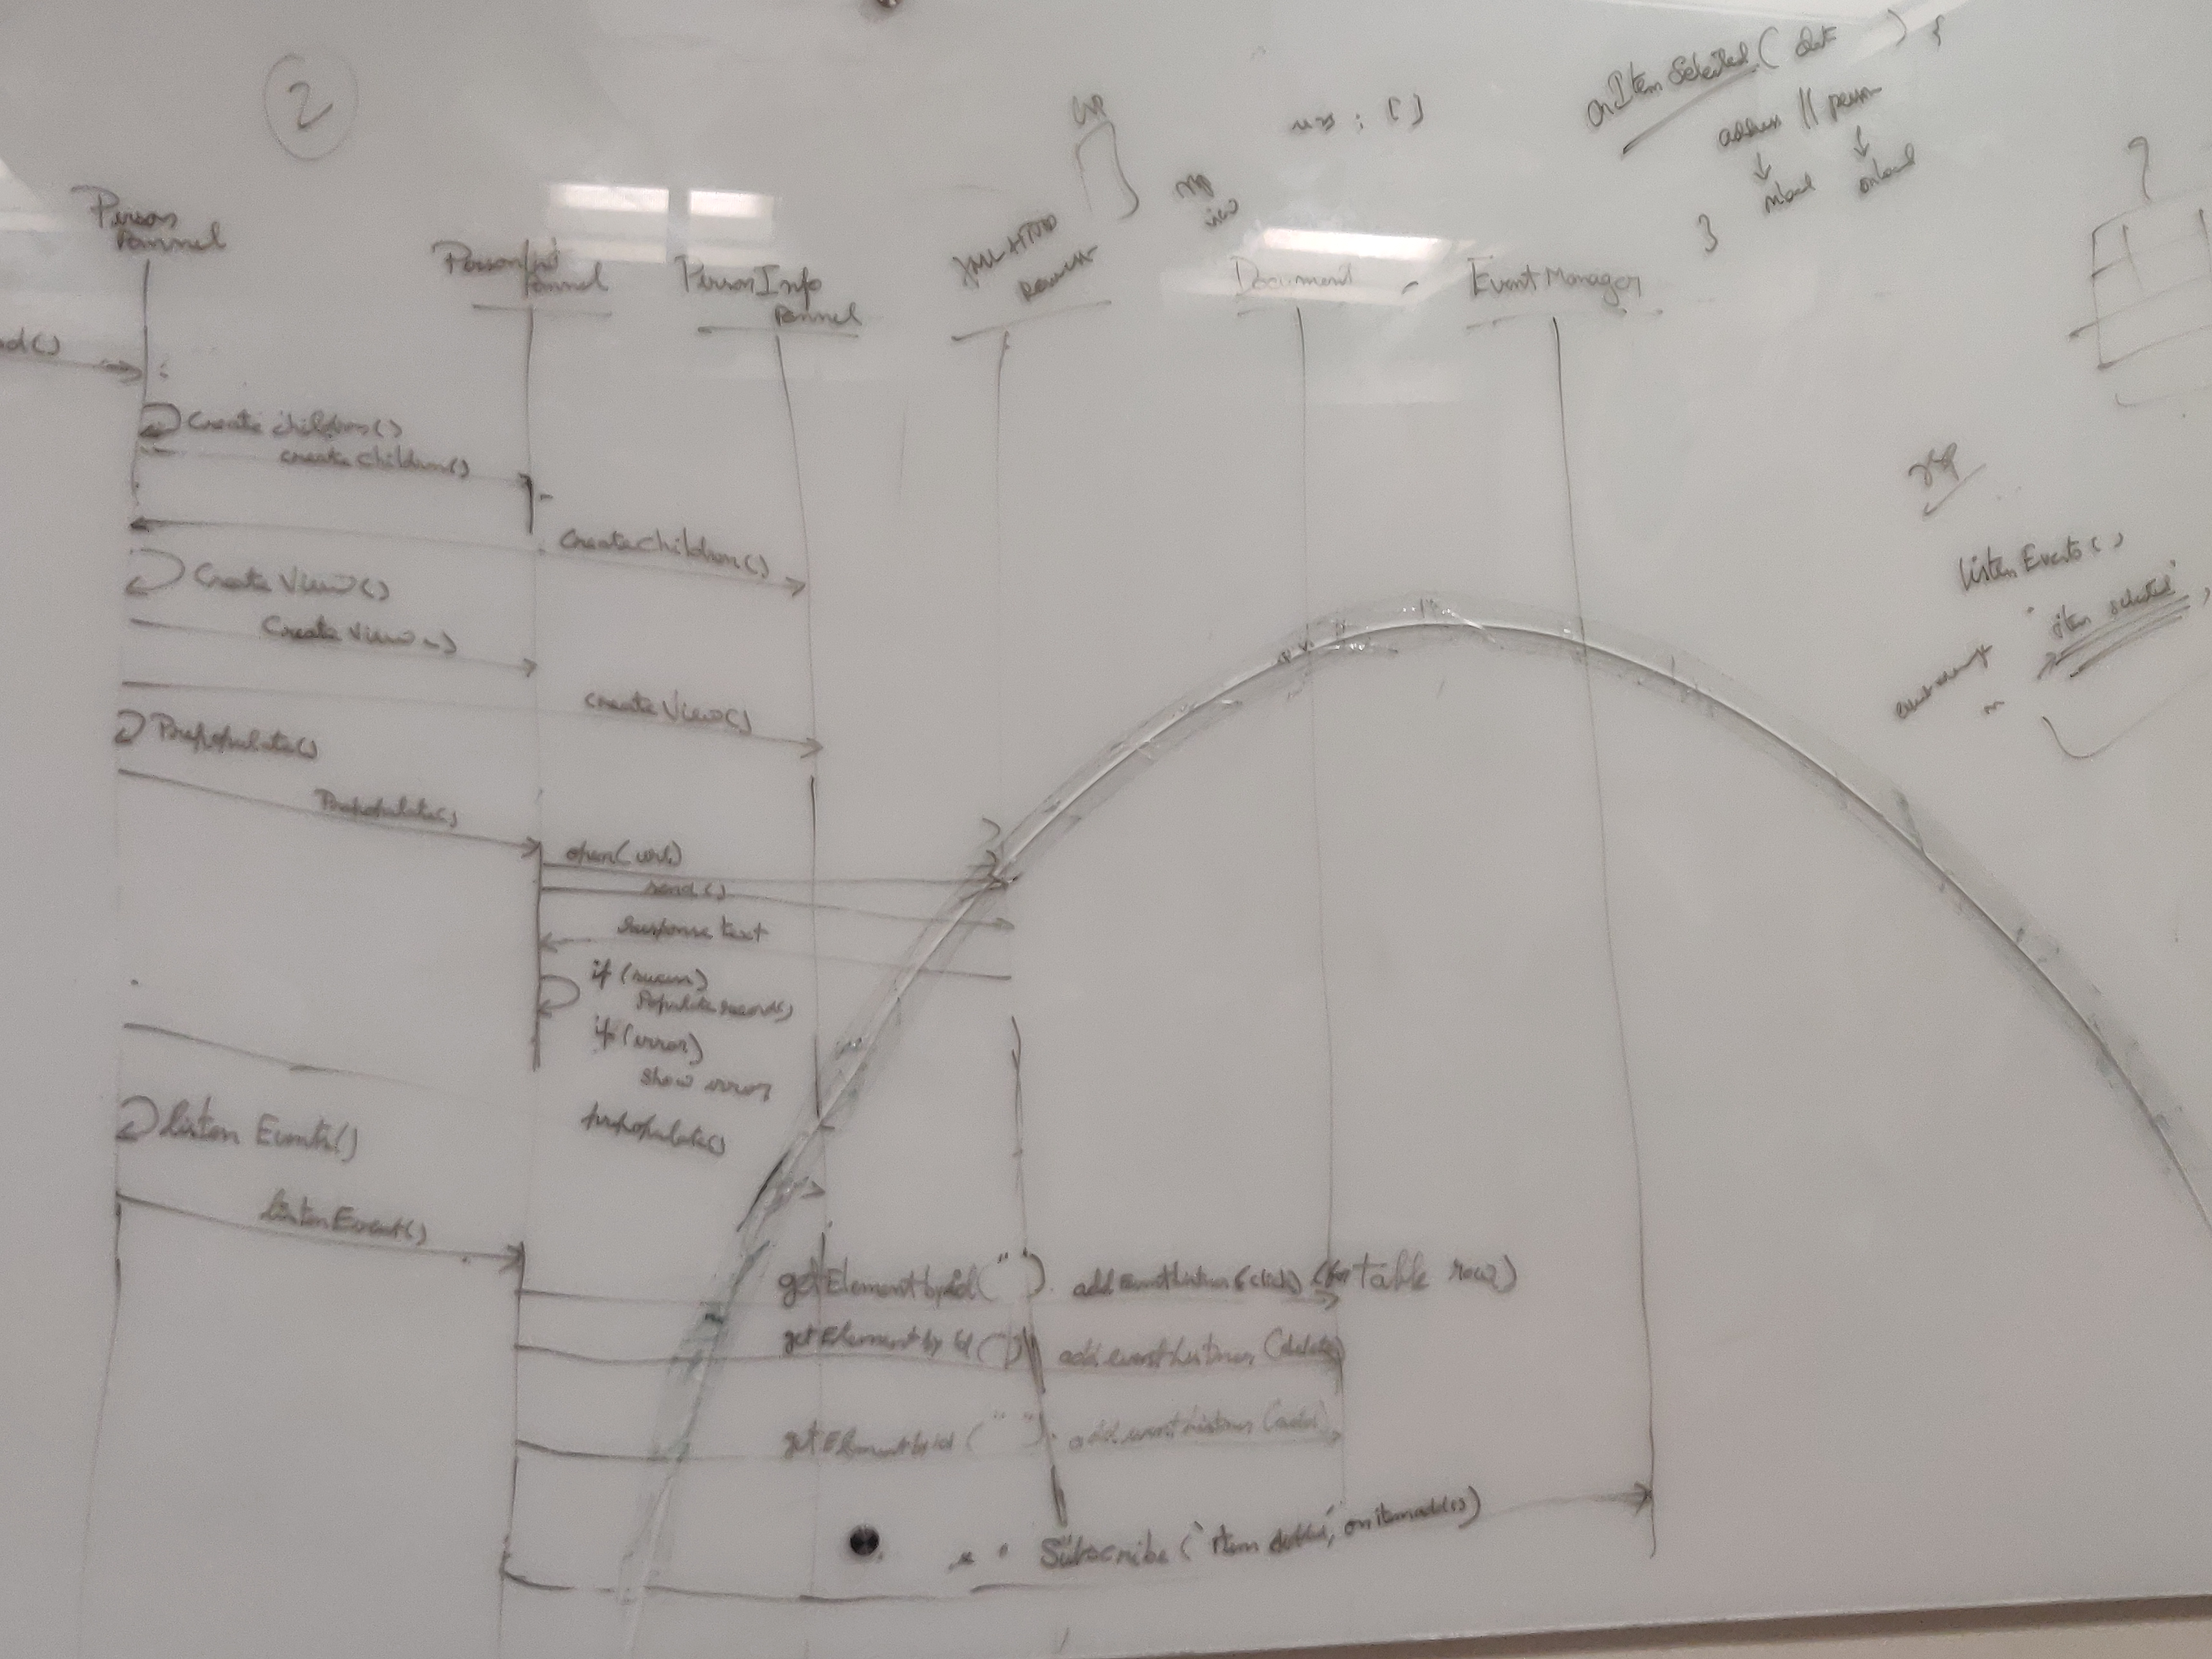 2
Person
Pannel
Pannel
PersonInfo
Pannel
XML HTTP
Request
Document
EventManager
onItemSelected (        ) {
address || person
↓ ↓
onload onload
}
: [ ]
?
ad()
Create children()
create children()
Create children()
Create View()
Create View()
create View()
Prepopulate()
Prepopulate()
open(url)
send()
response text
if (success)
Populate records()
if (error)
show error
prepopulate()
listen Events()
listenEvent()
getElementbyid(" "). add eventListener (click) (for table row)
getElement by id ( ) add eventListener (delete)
getElementbyid (" "). add eventListener (add)
Subscribe (
listen Events()
item selected